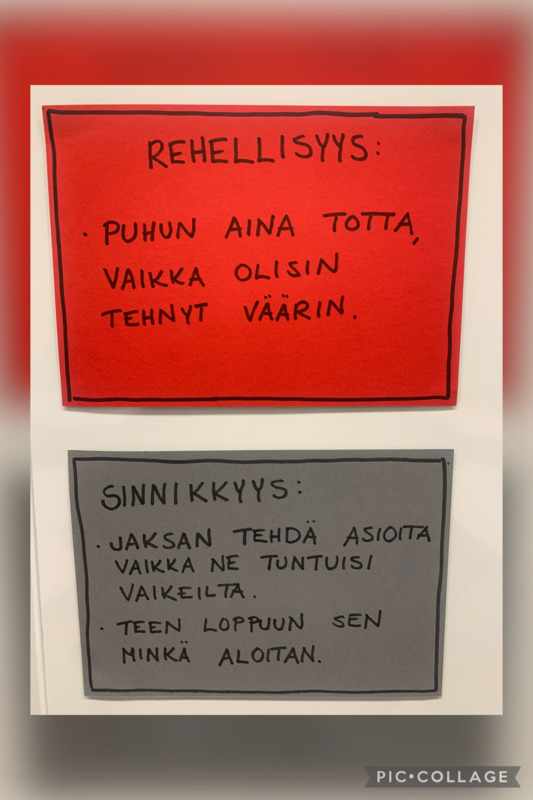 REHELLISYYS:
· PUHUN AINA TOTTA,
VAIKKA OLISIN
TEHNYT VÄÄRIN.
SINNIKKYYS:
· JAKSAN TEHDÄ ASIOITA
VAIKKA NE TUNTUISI
VAIKEILTA.
· TEEN LOPPUUN SEN
MINKÄ ALOITAN.
PIC•COLLAGE